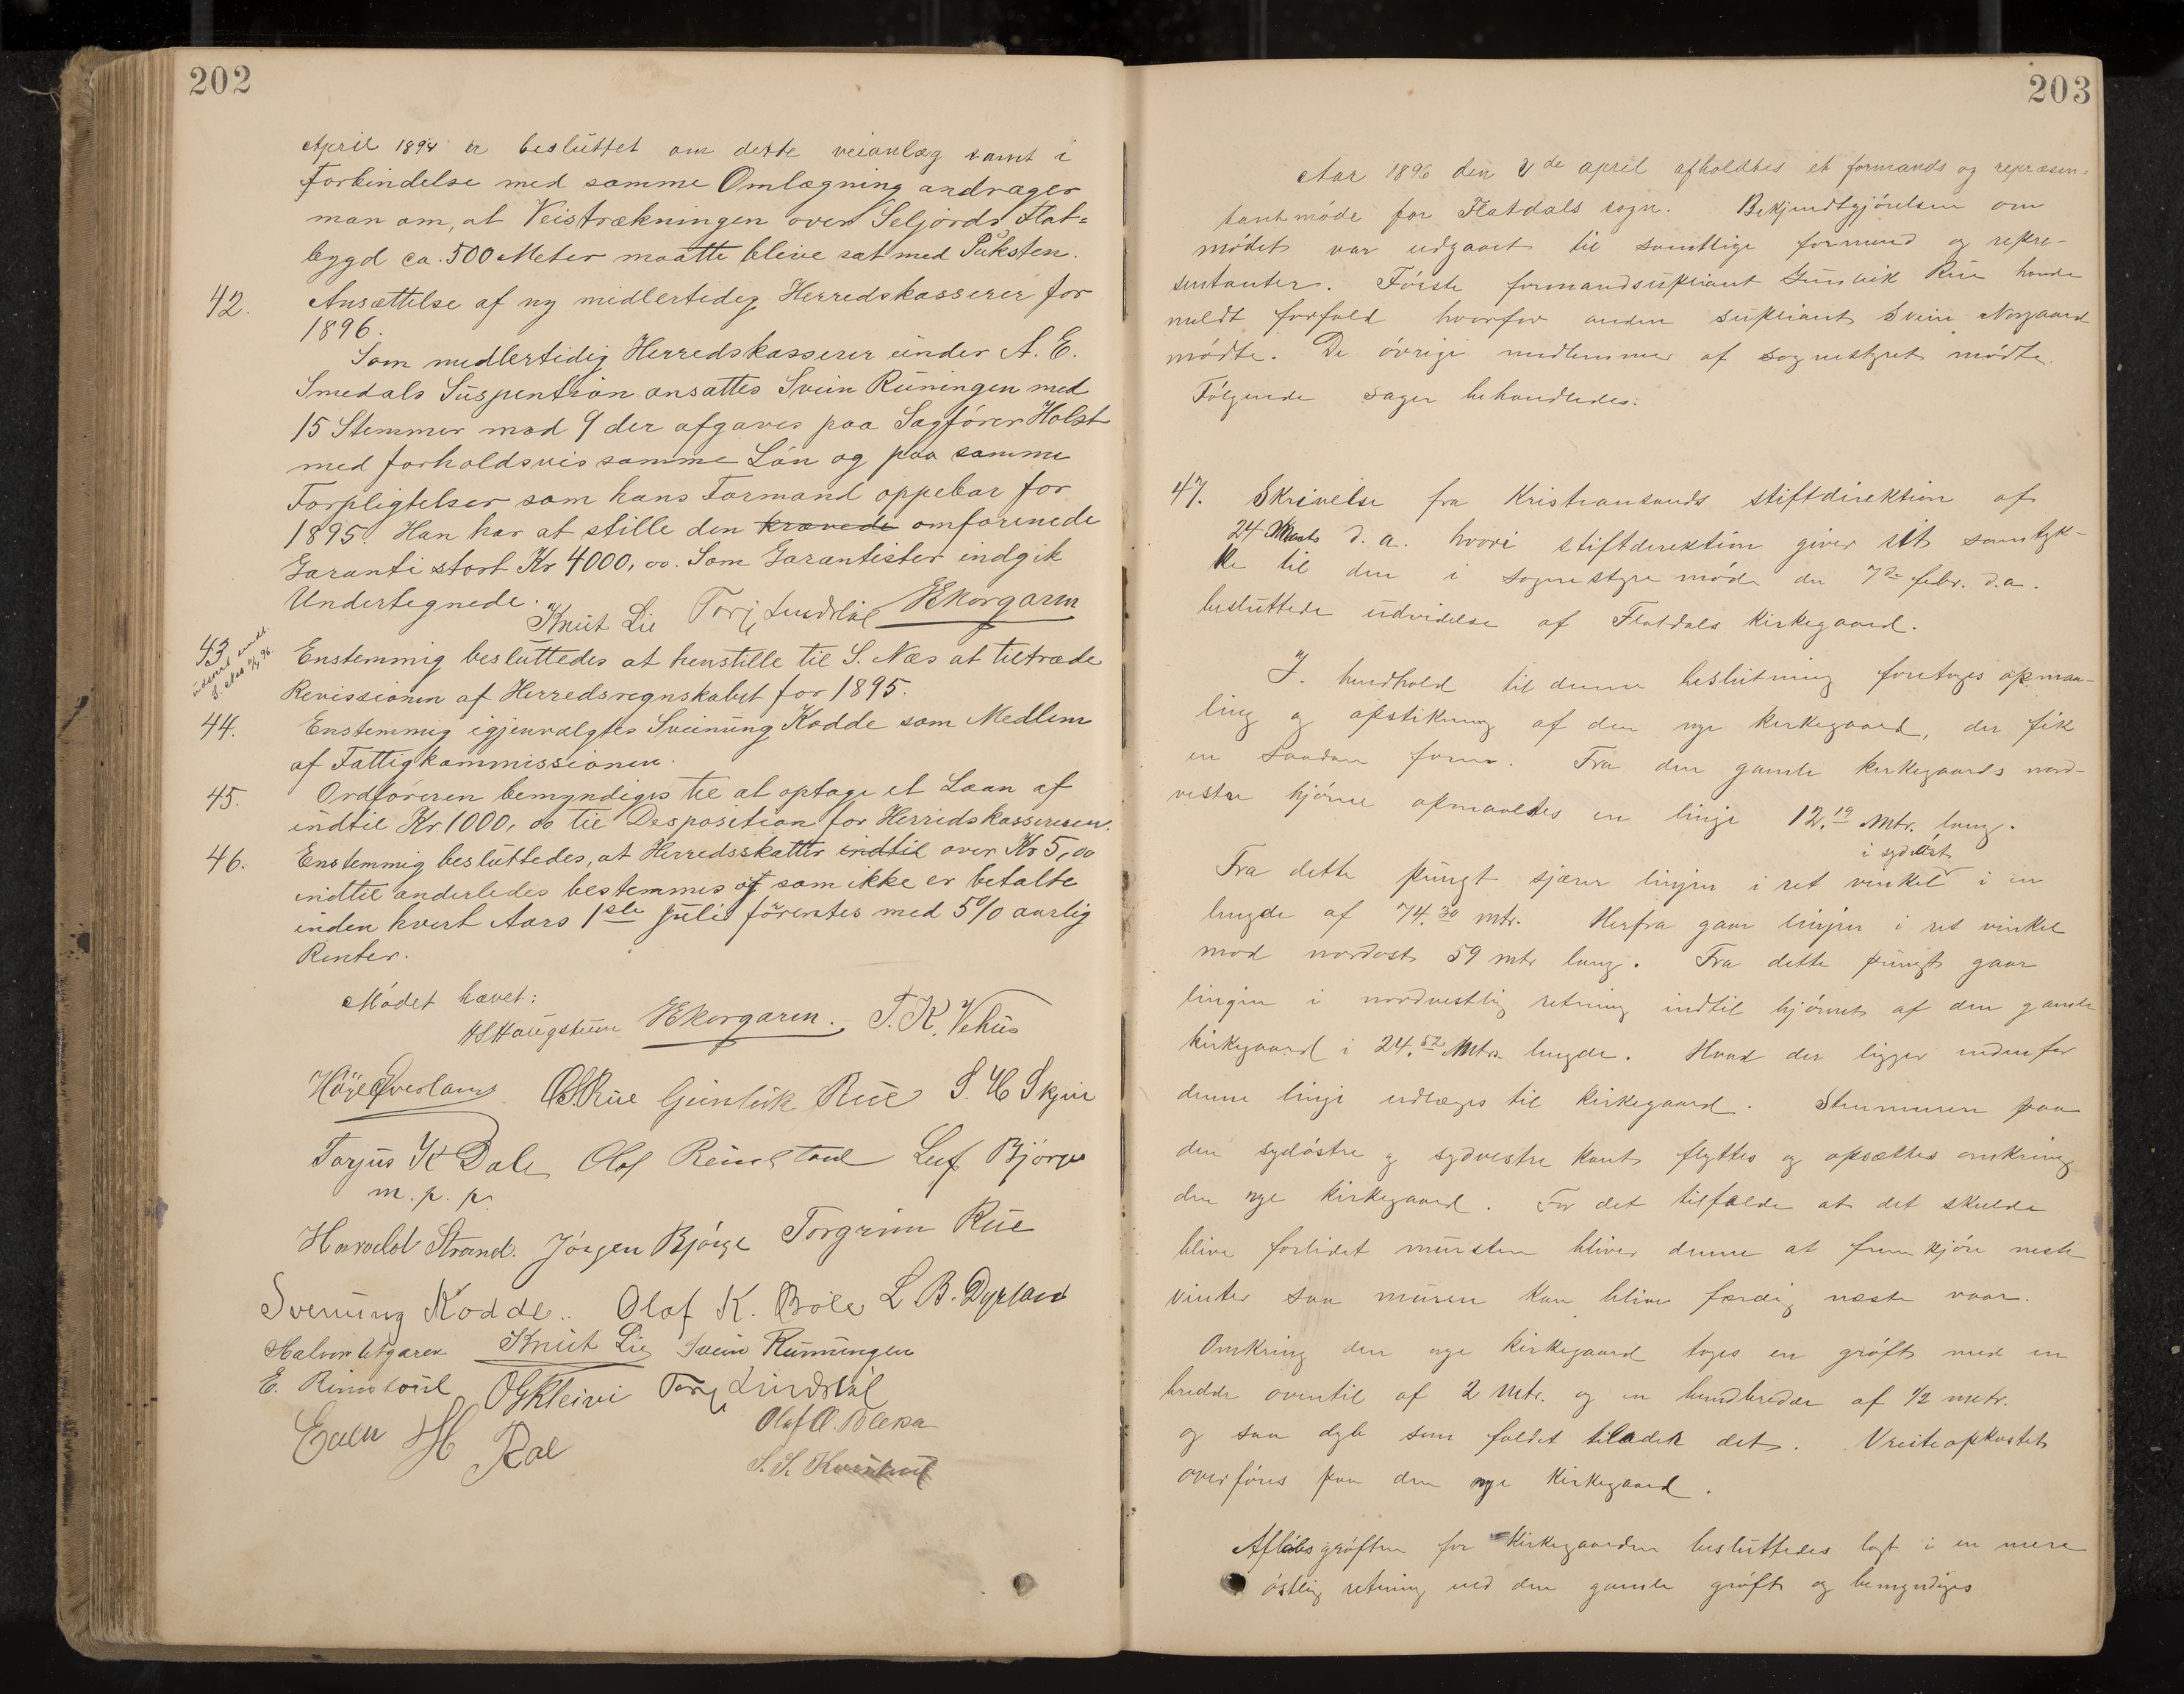 202
April 1894 er besluttet om dette veianlæg samt i
Forbindelse med samme Omlægning andrager
man om, at Veistrækningen over Seljords Flat=
bygd ca. 500 Meter maatte blive sat med Puksten.
42. Ansættelse af ny midlertidig Herredskasserer for
1896.
Som medlertidig Herredskasserer under A. E.
Smedals Suspention ansattes Svein Runingen med
15 Stemmer mod 9 der afgaves paa Sagfører Holst
med forholdsvis samme Løn og paa samme
Forpligtelser som hans Formand oppebar for
1895. Han har at stille den krævede omforenede
Garanti stort Kr 4000,00. Som Garantister indgik
Undertegnede.
Knut Lie Torj Lindsläl HEkorgaren
43 Enstemmig besluttedes at henstille til S. Næs at tiltræde
Revissionen af Herredsregnskabet for 1895.
44. Enstemmig igjenvalgtes Sveinung Kodde som Medlem
af Fattigkommissionen.
45. Ordføreren bemyndiges til at optage et Laan af
indtil Kr. 1000,00 til Desposition for Herredskassereren.
46. Enstemmig besluttedes, at Herredsskatter indtil over Kr 5,00
indtil anderledes bestemmes og som ikke er betalte
inden hvert Aars 1ste Juli forrentes med 5% aarlig
Renter.
Mødet hævet:
HSHaugstuen HEkorgaren. T. K. Vehus
Høye Øverland OSRue Gunleik Rue S. H Skjeie
Torjus K Dale Olaf Reimstoul Leif Bjørge
m. p. p.
Harald Strand. Jørgen Bjørge Torgrim Rue
Svenung Kodde.. Olaf K. Bøle L B. Dyrland
Halvor Utgaren Knut Lie Svein Runningen
E. Rimstoul OGKleivi Torj Lindsläl
Even H Roe Olaf O. Bleka
S. S.
203
Aar 1896 den 2de april afholdtes et formands og repræsen=
tantmøde for Flatdals sogn. Bekjendtgjørelsen om
mødet var udgaaet til samtlige formænd og repre-
sentanter. Første formandsupliant Gunleik Rue havde
meldt forfald hvorfor anden supliant Svein Norgaard
mødte. De øvrige medlemmer af sognestyret mødte.
Følgende sager behandledes:
47. Skrivelse fra Kristiansands stiftdirektion af
24 Marts d. a. hvori stiftdirektion giver sit samtyk-
ke til den i sognestyremøde den 7de febr. d.a.
besluttede udvidelse af Flatdals kirkegaard.
I hendhold til denne beslutning foretoges opmaa-
ling og opstikning af den nye kirkegaard, der fik
en saadan form. Fra den gamle kirkegaards nord-
vestre hjørne opmaaltes en linje 12,19 Mtr. lang.
i sydvest
Fra dette pungt sjærer linjen i ret vinkel i en
lengde af 74,30 mtr. Herfra gaar linjen i ret vinkel
mod nordost 59 mtr lang. Fra dette pungt gaar
lingen i nordvestlig retning indtil hjørnet af den gamle
kirkegaard i 24,52 Mtrs lengde. Hvad der ligger indenfor
denne linje udlægges til kirkegaard. Stenmuren paa
den sydøstre og sydvestre kant flyttes og opsættes omkring
den nye kirkegaard. For det tilfælde at det skulde
blive forlidet mursten bliver denne at fremkjøre neste
vinter saa muren kan blive færdig næste vaar.
Omkring den nye kirkegaard toges en grøft med en
bredde oventil af 2 Mtr. og en bundbredde af 1/2 metr.
og saa dyb som faldet tilader det. Vreiteopkastet
overføres paa den nye Kirkegaard.
Afløbsgrøften for Kirkegaarden besluttedes lagt i en mere
østlig retning ved den gamle grøft og bemyndiges